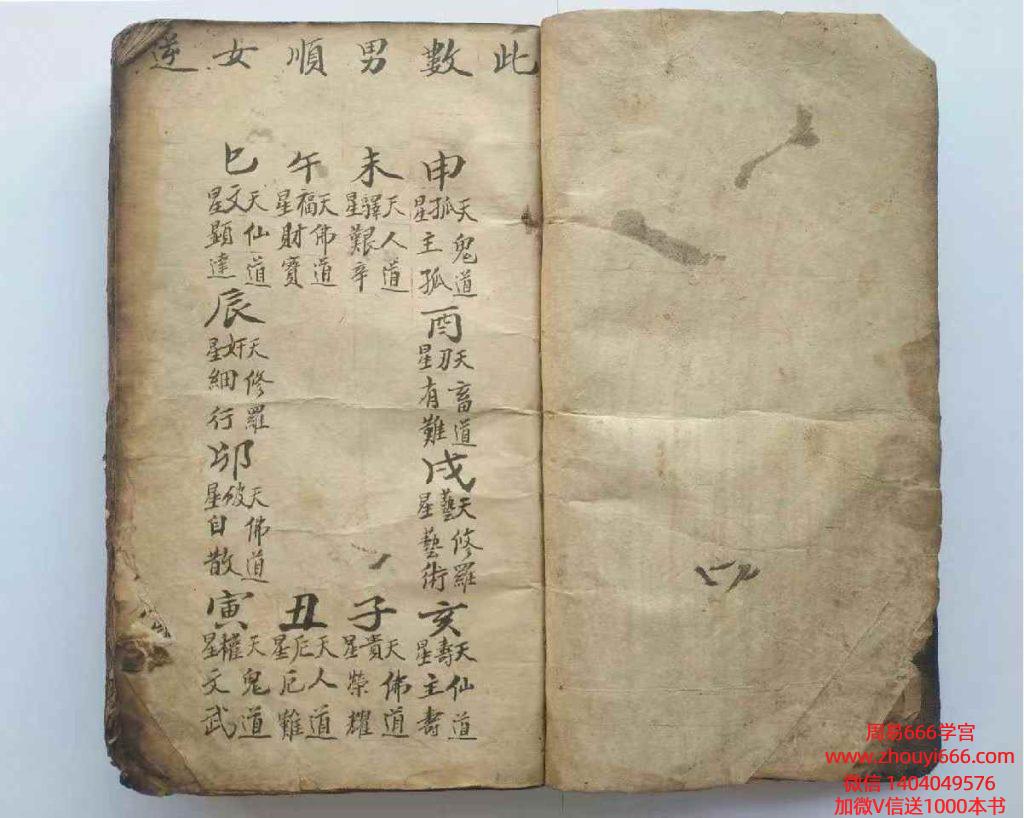 此數男順女逆
申
天孤星
鬼道
主孤
未
天驛星
人道
艱辛
午
天福星
佛道
財寶
巳
天文星
仙道
顕達
酉
天刃星
畜道
有難
辰
天奸星
修羅
細行
戌
天藝星
修羅
藝術
卯
天破星
佛道
自散
亥
天壽星
仙道
主壽
子
天貴星
佛道
榮耀
丑
天厄星
人道
厄難
寅
天權星
鬼道
文武
周易666学宫
www.zhouyi666.com
微信1404049576
加微V信送1000本书